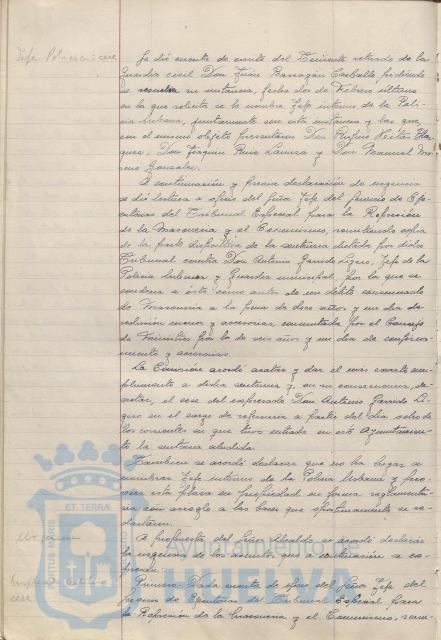 Jefe Policia: cese
Se dió cuenta de escrito del Teniente retirado de la
Guardia civil Don Juan Barragán Carballo, pidiendo
se resuelva su instancia, fecha dos de Febrero último
en la que solicita se le nombre Jefe interino de la Poli-
cia Urbana, juntamente con esta instancia y las que
con el mismo objeto presentaron Don Rufino
Don Joaquin y Don Manuel Mo-
reno Gonzalez.
A continuación y previa declaración de urgencia
se dió lectura a oficio del Señor Jefe del servicio de Eje-
cutorias del Tribunal Especial para la Represión
de la Masoneria y el Comunismo, remitiendo copia
de la parte dispositiva de la sentencia dictada por dicho
Tribunal contra Don Antonio Garrido Ligero, Jefe de la
Policia Urbana y Guardia municipal, por la que se
condena a éste como autor de un delito consumado
de Masoneria a la pena de doce años y un dia de
reclusión menor y accesorias, conmutada por el Consejo
de Ministros por la de seis años y un dia de confina-
miento y accesorias.
La Comisión acordó acatar y dar el más exacto cum-
plimiento a dicha sentencia y, en su consecuencia, de-
cretar, el cese del expresado Don Antonio Garrido Li-
gero en el cargo de referencia a partir del dia ocho de
los corrientes en que tuvo entrada en este Ayuntamien-
to la sentencia aludida.
Tambien se acordó declarar que no ha lugar a
nombrar Jefe interino de la Policia Urbana y pro-
veer esta plaza en propiedad en forma reglamenta-
ria con arreglo a las bases que oportunamente se re-
dactaren.
Urgencia
A propuesta del Señor Alcalde se acordó declarar
la urgencia de los asuntos que a continuación se ex-
presan:
cese
Primero. Dada cuenta de oficio del Señor Jefe del
Servicio de Ejecutorias del Tribunal Especial para
la Represión de la Masoneria y el Comunismo, remi-
ET TERRAE
Ayuntamiento de
HUELVA